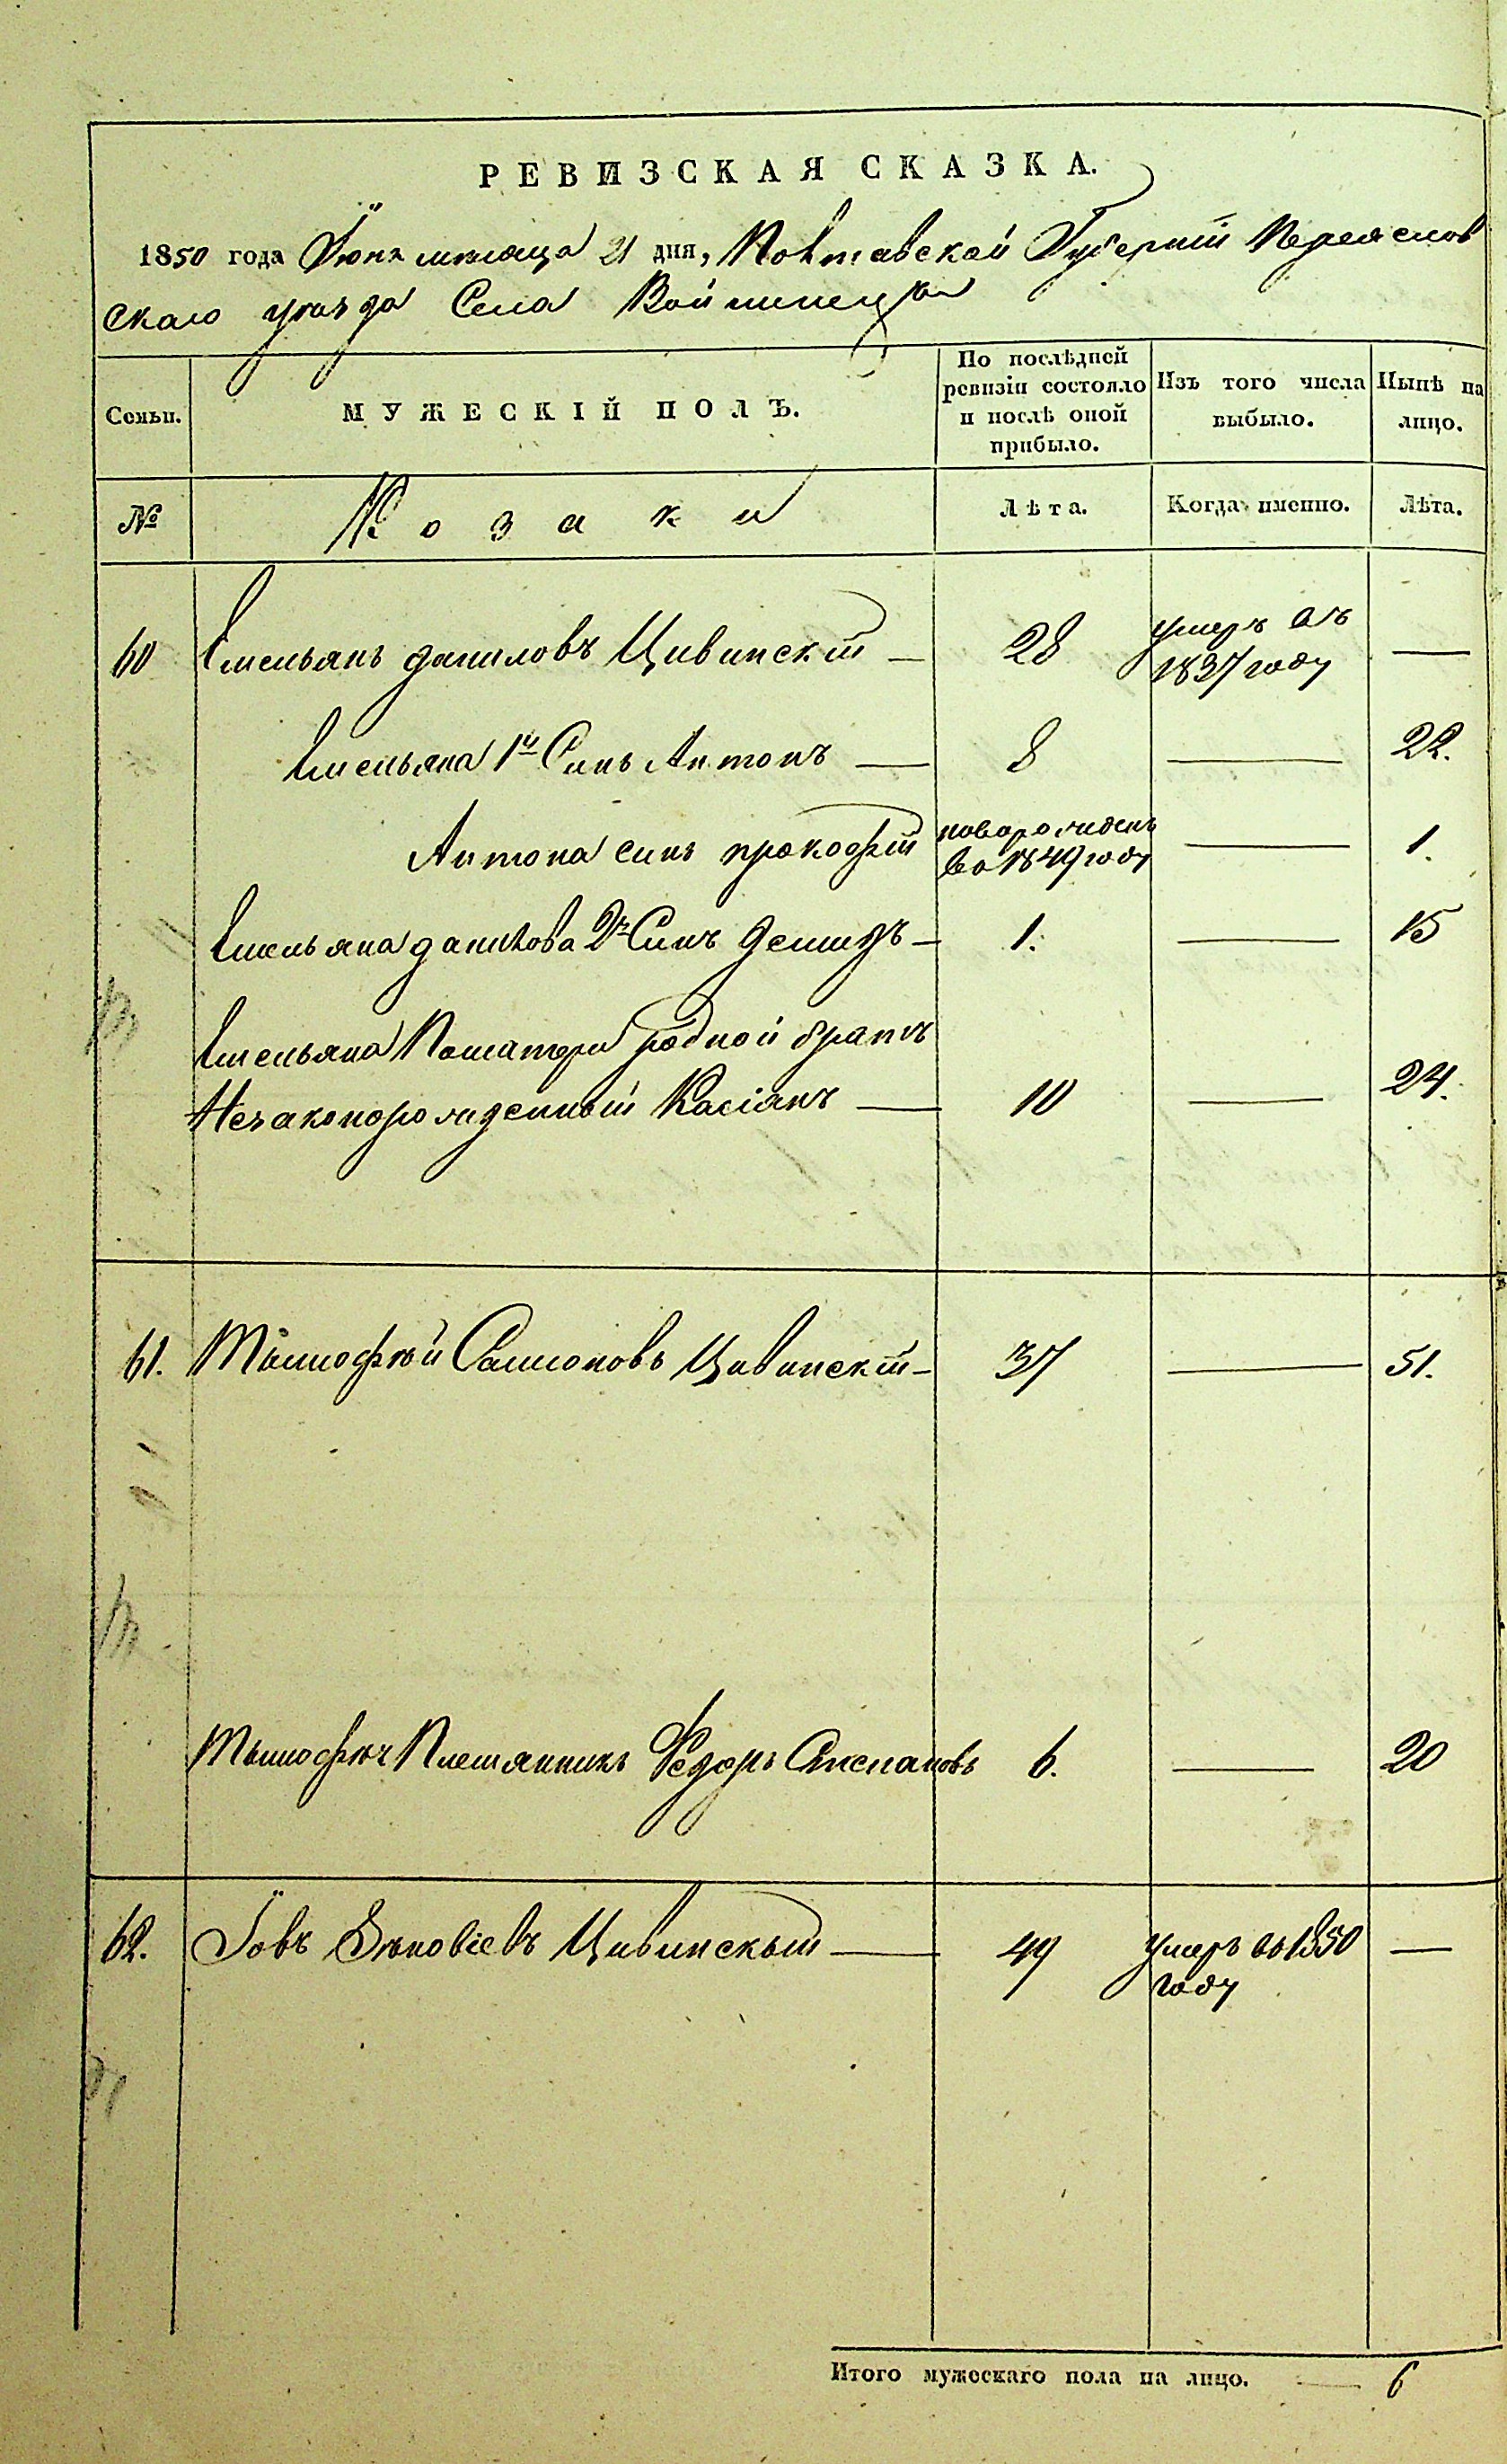 РЕВИЗСКАЯ СКАЗКА.
1850 года Іюня месяца 21 дня, Полтавской Губерніи Переяслов
скаго уезда Села Войтинецъ
Семьи.
МУЖЕСКІЙ ПОЛЪ.
По послѣдней
ревизіи состояло
и послѣ оной
прибыло.
Изъ того числа
выбыло.
Нынѣ на
лицо.
№
Козаки
Лѣта.
Когда именно.
Лѣта.
60 Емельянъ даниловъ Цивинскій — 28 умеръ въ
1837 году —
Емельяна 1й Синъ Антонъ — 8 — 22.
Антона синъ прокофій новорожденъ
во 1849 году — 1.
Емельяна данилова 2й Синъ демидъ — 1. — 15
Емельяна Поматери родной братъ
Незаконорожденный Касіянъ — 10 — 24.
61. Тымофѣй Самсоновъ Цивинскій — 37 — 51.
Тымофѣя Племянникъ Федоръ Степановъ 6. — 20
62. Іовъ Зѣновіевъ Цивинскый — 49 умеръ во 1850
году —
Итого мужескаго пола на лицо. — 6